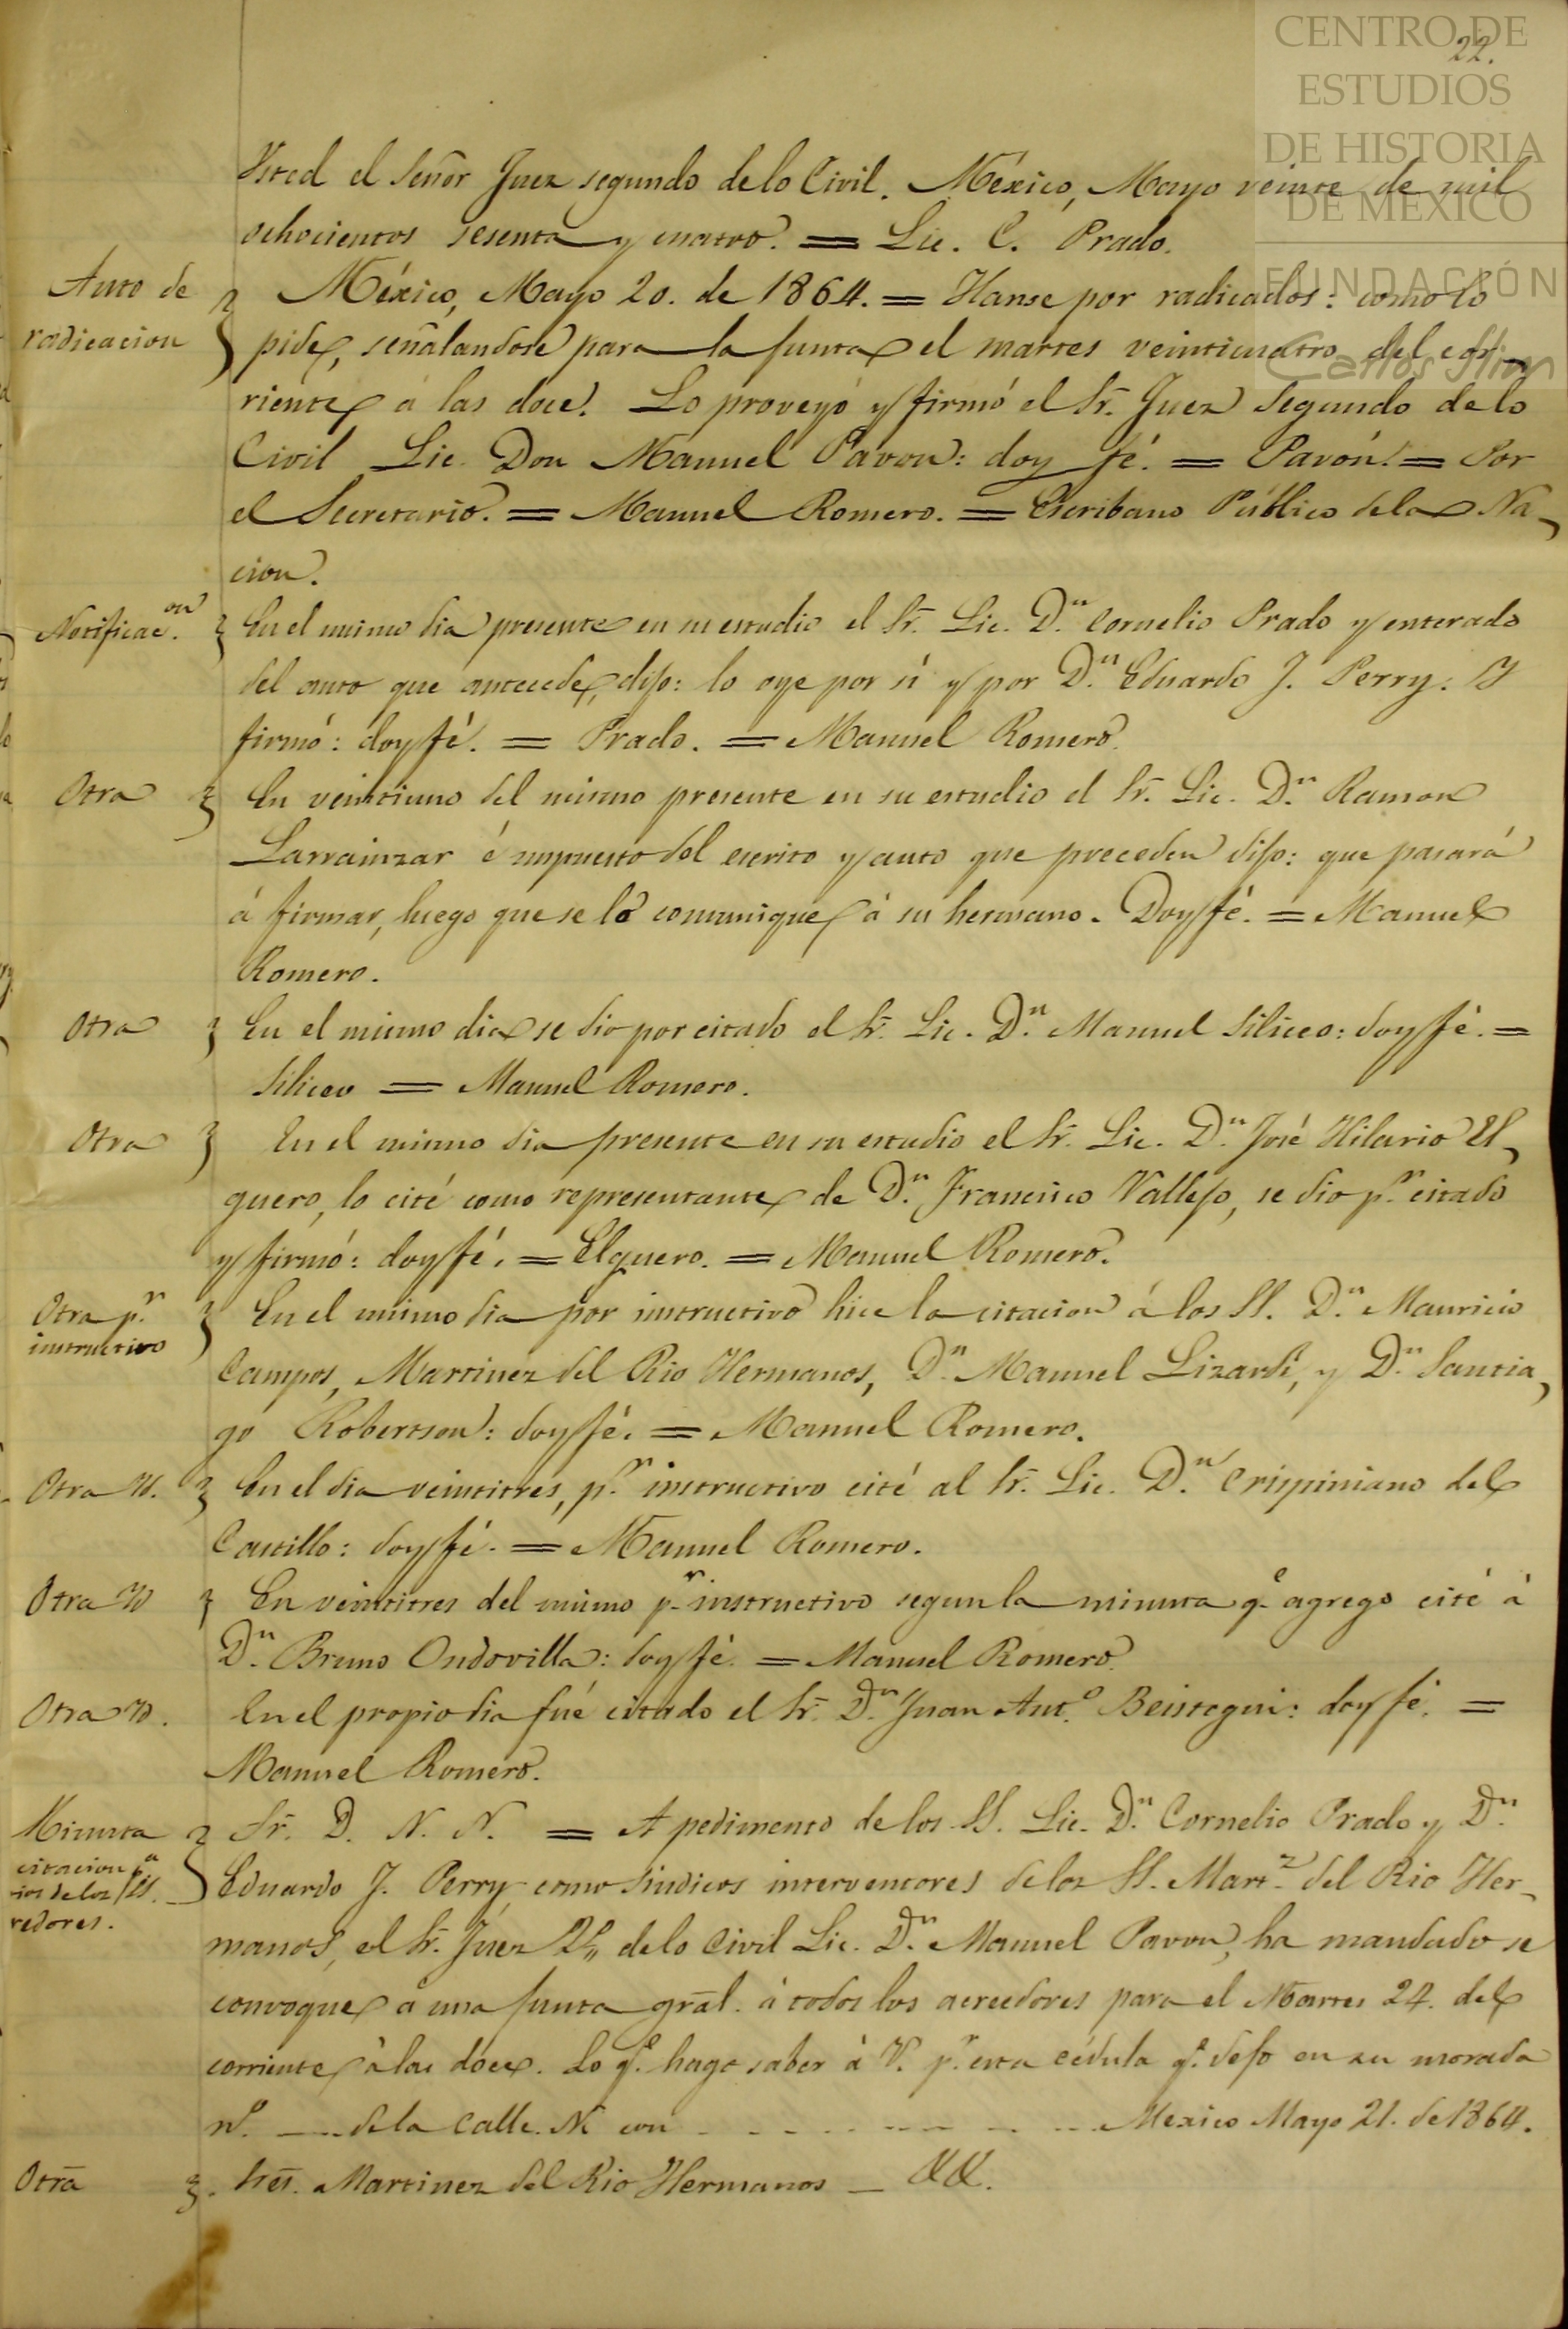 CENTRO DE
22.
ESTUDIOS
DE HISTORIA
DE MÉXICO
FUNDACIÓN
Carlos Slim
Usted el Señor Juez segundo de lo Civil. México, Mayo veinte de mil
ochocientos sesenta y cuatro. = Lic. C. Prado.
Auto de
radicacion
México, Mayo 20. de 1864. = Hanse por radicados: como lo
pide, señalandose para la junta el martes veinticuatro del cor-
riente á las doce. Lo proveyó y firmó el Sr. Juez Segundo de lo
Civil Lic. Don Manuel Pavon: doy fé. = Pavón. = Por
el Secretario. = Manuel Romero. = Escribano Público de la Na-
cion.
Notificac.on
En el mismo dia presente en su estudio el Sr. Lic. D.n Cornelio Prado y enterado
del auto que antecede, dijo: lo oye por sí y por D.n Eduardo J. Perry. Y
firmó: doy fé. = Prado. = Manuel Romero.
Otra
En veintiuno del mismo presente en su estudio el Sr. Lic. D.n Ramon
Larrainzar é impuesto del escrito y auto que preceden dijo: que pasará
á firmar, luego que se lo comunique á su hermano. Doy fé. = Manuel
Romero.
Otra
En el mismo dia se dio por citado el Sr. Lic. D.n Manuel Siliceo: doy fé. =
Siliceo = Manuel Romero.
Otra
En el mismo dia presente en su estudio el Sr. Lic. D.n José Hilario El-
guero, lo cité como representante de D.n Francisco Vallejo, se dio p.r citado
y firmó: doy fé. = Elguero. = Manuel Romero.
Otra p.r
instructivo
En el mismo dia por instructivo hice la citacion á los SS. D.n Mauricio
Campos, Martinez del Rio Hermanos, D.n Manuel Lizardi, y D.n Santia-
go Robertson: doy fé. = Manuel Romero.
Otra Yd.
En el dia veintitres, p.r instructivo cité al Sr. Lic. D.n Crispiniano del
Castillo: doy fé. = Manuel Romero.
Otra Yd
En veintitres del mismo p.r instructivo segun la minuta q.e agrego cité á
D.n Bruno Ondovilla: doy fé. = Manuel Romero.
Otra Yd.
En el propio dia fué citado el Sr. D.n Juan Ant.o Beistegui: doy fé. =
Manuel Romero.
Minuta
citacion
redores.
Sr. D. N. N. = A pedimento de los SS. Lic. D.n Cornelio Prado y D.n
Eduardo J. Perry como síndicos interventores de los SS. Mart.z del Rio Her-
manos, el Sr. Juez 2.o de lo Civil Lic. D.n Manuel Pavon, ha mandado se
convoque á una junta gral. á todos los acreedores para el Martes 24. del
corriente á las doce. Lo q.e hago saber á V. p.r esta cédula q.e dejo en su morada
n.o — de la calle. N. con - - - - - - Mexico Mayo 21. de 1864.
Otra
Sres. Martinez del Rio Hermanos — &&.